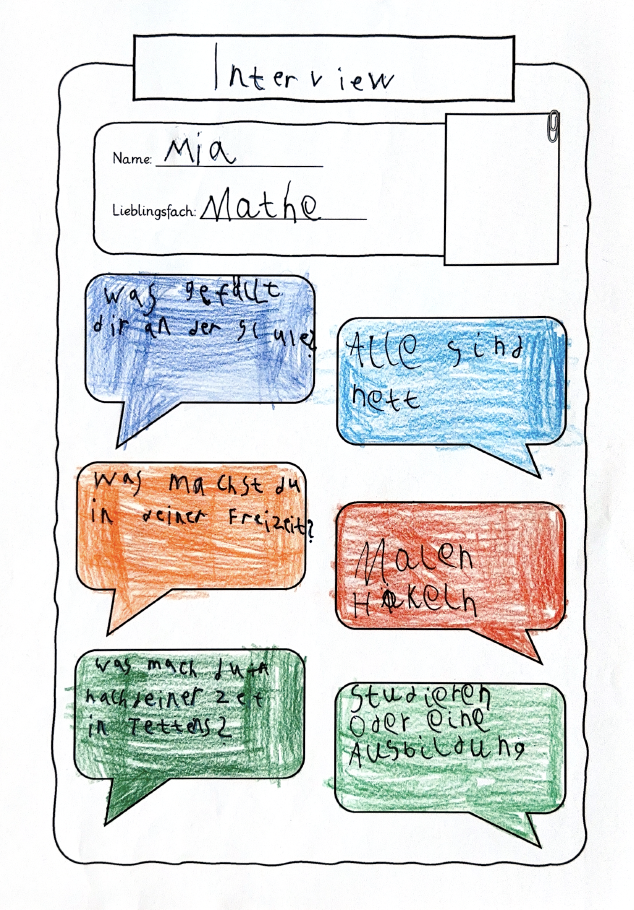 Interview
Name: Mia
Lieblingsfach: Mathe
Was gefällt
dir an der
Alle sind
nett
Was machst du
in deiner Freizeit?
Malen
Häkeln
was mach
nach deiner
in Tettens?
Studieren
Oder eine
Ausbildung